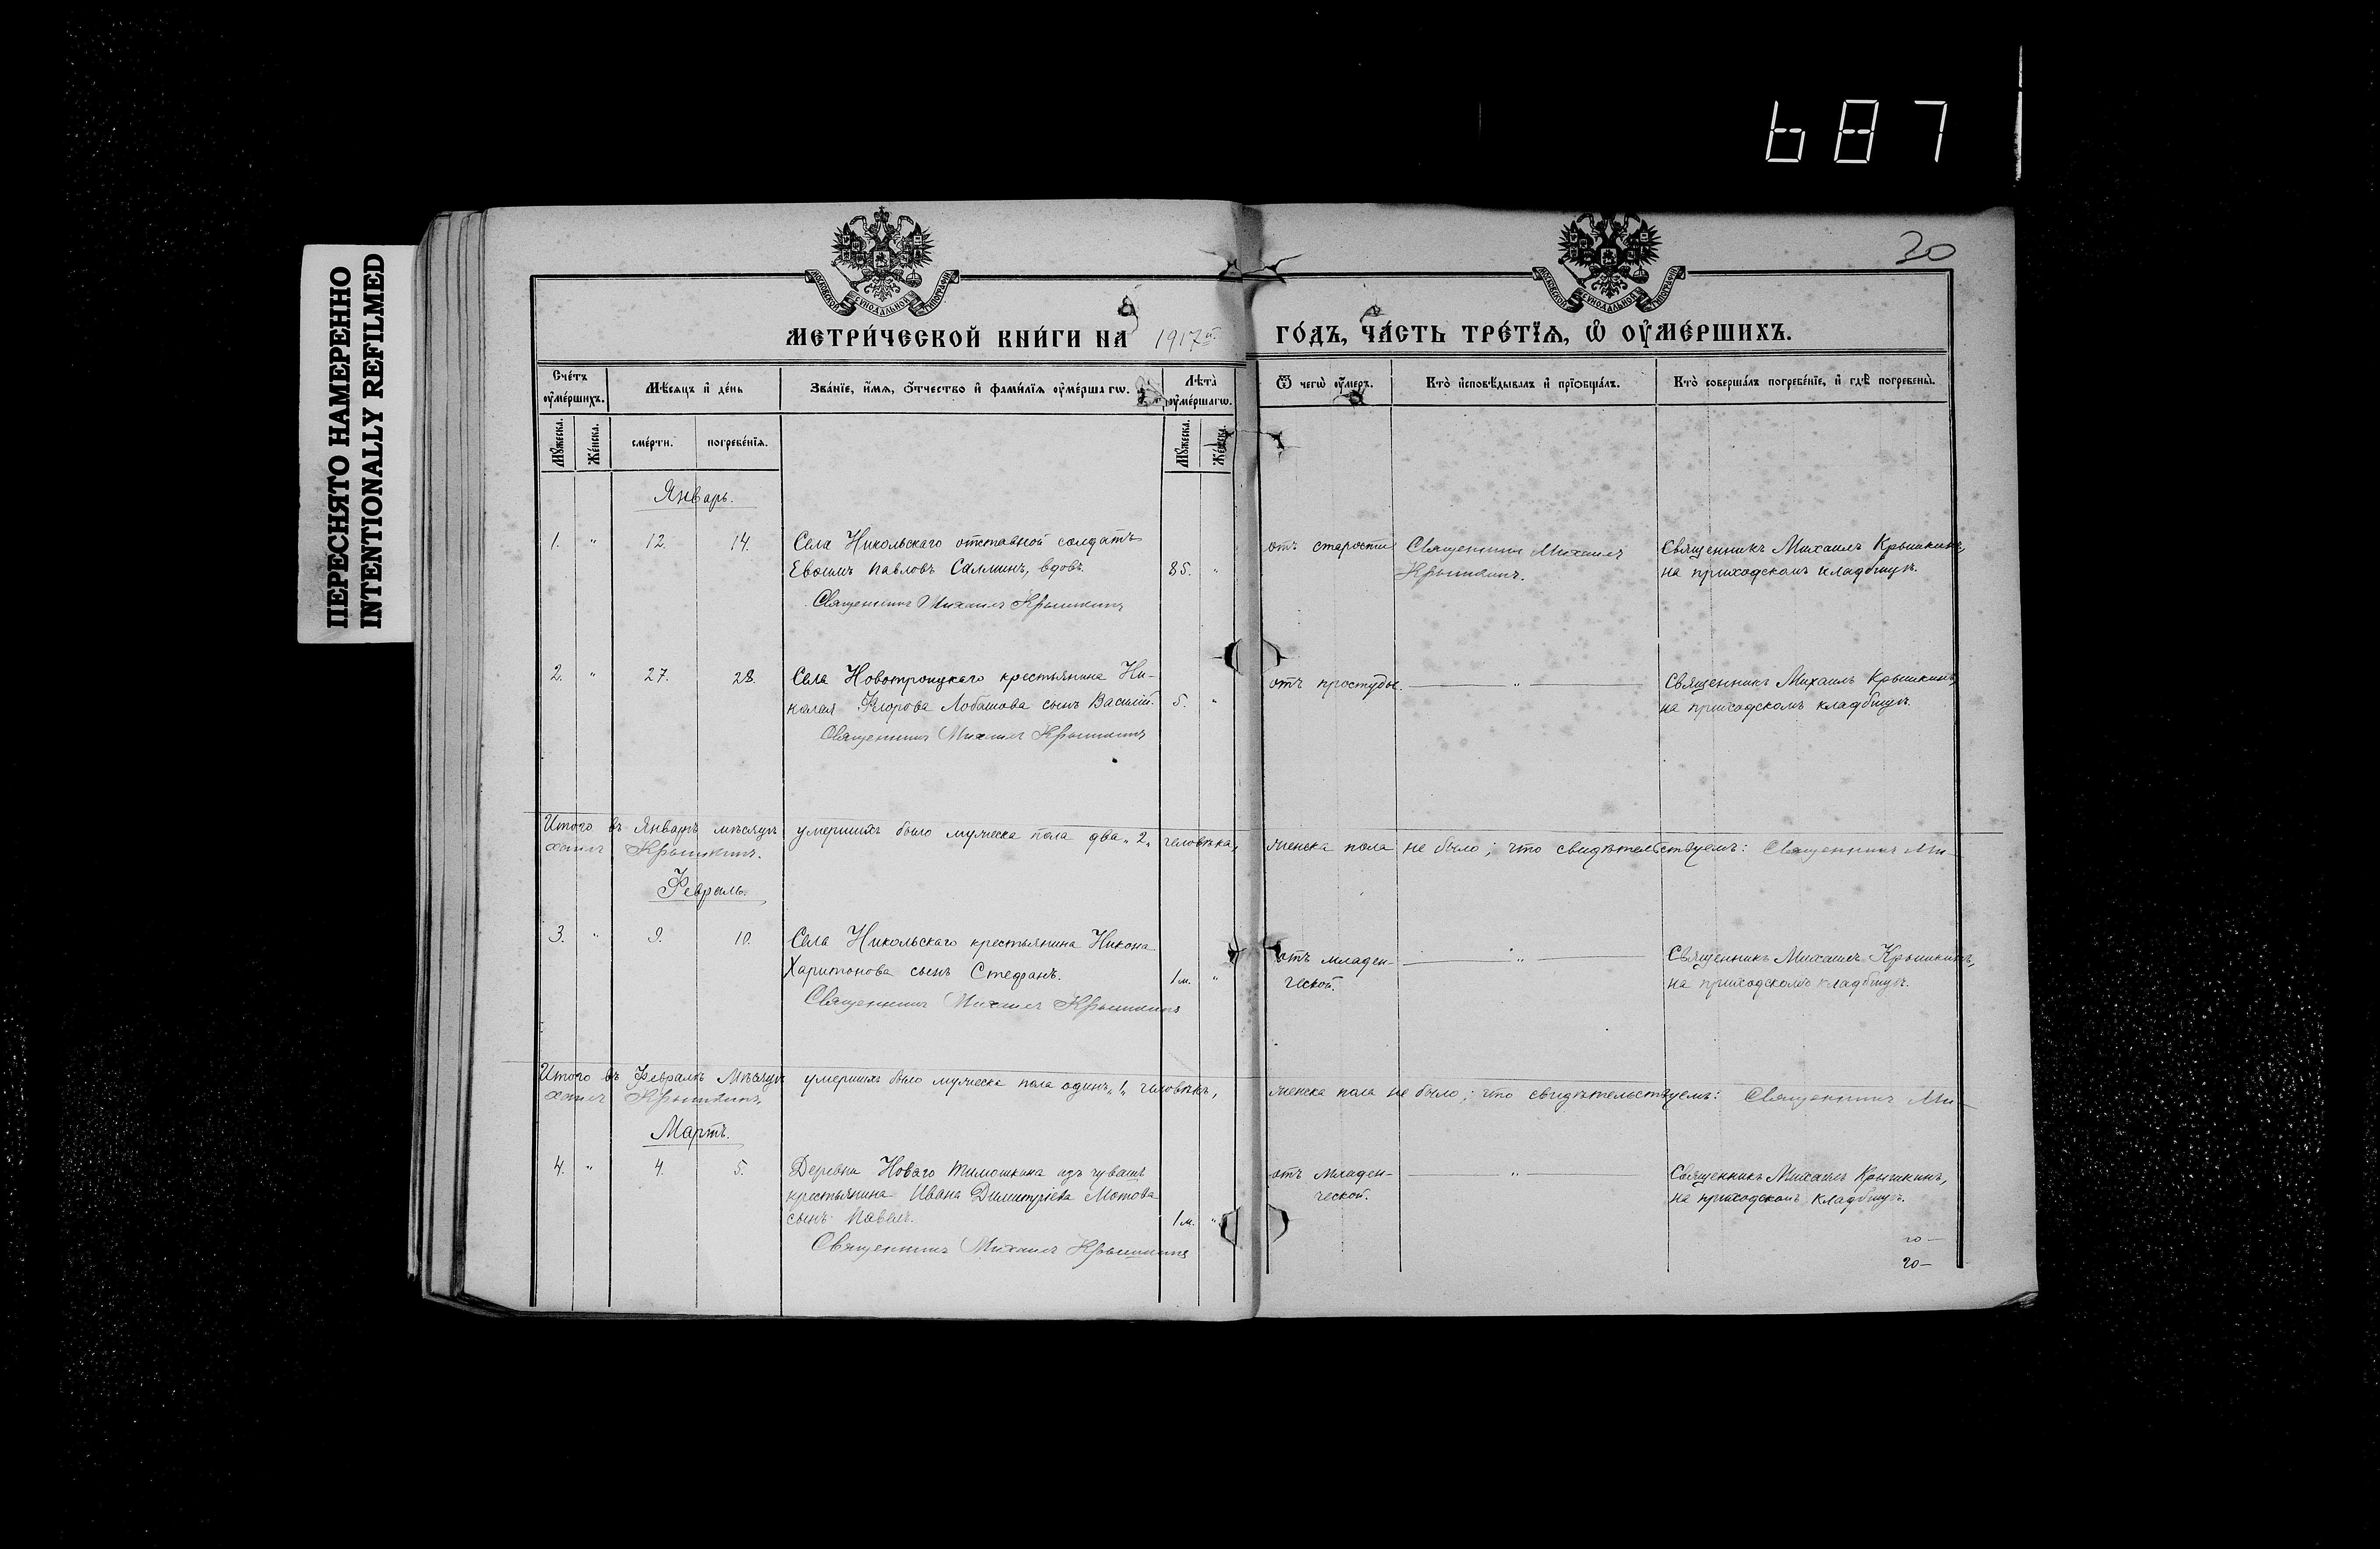 687
ПЕРЕСНЯТО НАМЕРЕННО
INTENTIONALLY REFILMED
30
МОСКОВСКОЙ СѴНОДАЛЬНОЙ ТИПОГРАФІИ
МОСКОВСКОЙ СѴНОДАЛЬНОЙ ТИПОГРАФІИ
МЕТРИ́ЧЕСКОЙ КНИ́ГИ НА 1917й ГО́ДЪ, ЧА́СТЬ ТРЕ́ТЇѦ, Ѽ ОУ҆МЕ́РШИХЪ.
Сче́тъ оу҆ме́ршихъ.
Мѣ́сяцъ и҆ де́нь
Зва́нїе, и҆́мѧ, ѻ҆́тчество и҆ фамѝлїѧ оу҆ме́ршагѡ.
Лѣ́та оу҆ме́ршагѡ.
Ѿ чегѡ̀ оу҆́меръ.
Кто̀ и҆сповѣ́дывалъ и҆ прїѡбща́лъ.
Кто̀ соверша́лъ погребе́нїе, и҆ гдѣ̀ погребены̀.
Мꙋ́жеска.
Же́нска.
сме́рти.
погребе́нїѧ.
Мꙋ́жеска.
Же́нска.
Январь.
1. " 12. 14. Села Никольскаго отставной солдатъ
Евѳимъ Павловъ Салминъ, вдовъ. 85. "
Священникъ Михаилъ Крышкинъ
отъ старости
Священникъ Михаилъ
Крышкинъ.
Священникъ Михаилъ Крышкинъ,
на приходскомъ кладбищѣ.
2. " 27. 28. Села Новотроицкаго крестьянина Ни-
колая Ѳедорова Лобашова сынъ Василій. 5. "
Священникъ Михаилъ Крышкинъ
отъ простуды. — " —
Священникъ Михаилъ Крышкинъ,
на приходскомъ кладбищѣ.
Итого въ Январѣ мѣсяцѣ умершихъ было мужеска пола два „2„ человѣка, женска пола не было; что свидѣтельствуемъ: Священникъ Ми-
хаилъ Крышкинъ.
Февраль.
3. " 9. 10. Села Никольскаго крестьянина Никона
Харитонова сынъ Стефанъ. 1 м. "
Священникъ Михаилъ Крышкинъ
отъ младен-
ческой.
— " —
Священникъ Михаилъ Крышкинъ,
на приходскомъ кладбищѣ.
Итого въ Февралѣ Мѣсяцѣ умершихъ было мужеска пола одинъ „1„ человѣкъ, женска пола не было; что свидѣтельствуемъ: Священникъ Ми-
хаилъ Крышкинъ.
Мартъ.
4. " 4. 5. Деревни Новаго Тимошкина изъ чувашъ
крестьянина Ивана Димитріева Мотова
сынъ Павелъ. 1 м. "
Священникъ Михаилъ Крышкинъ
отъ младен-
ческой.
— " —
Священникъ Михаилъ Крышкинъ,
на приходскомъ кладбищѣ.
20 —
20 —